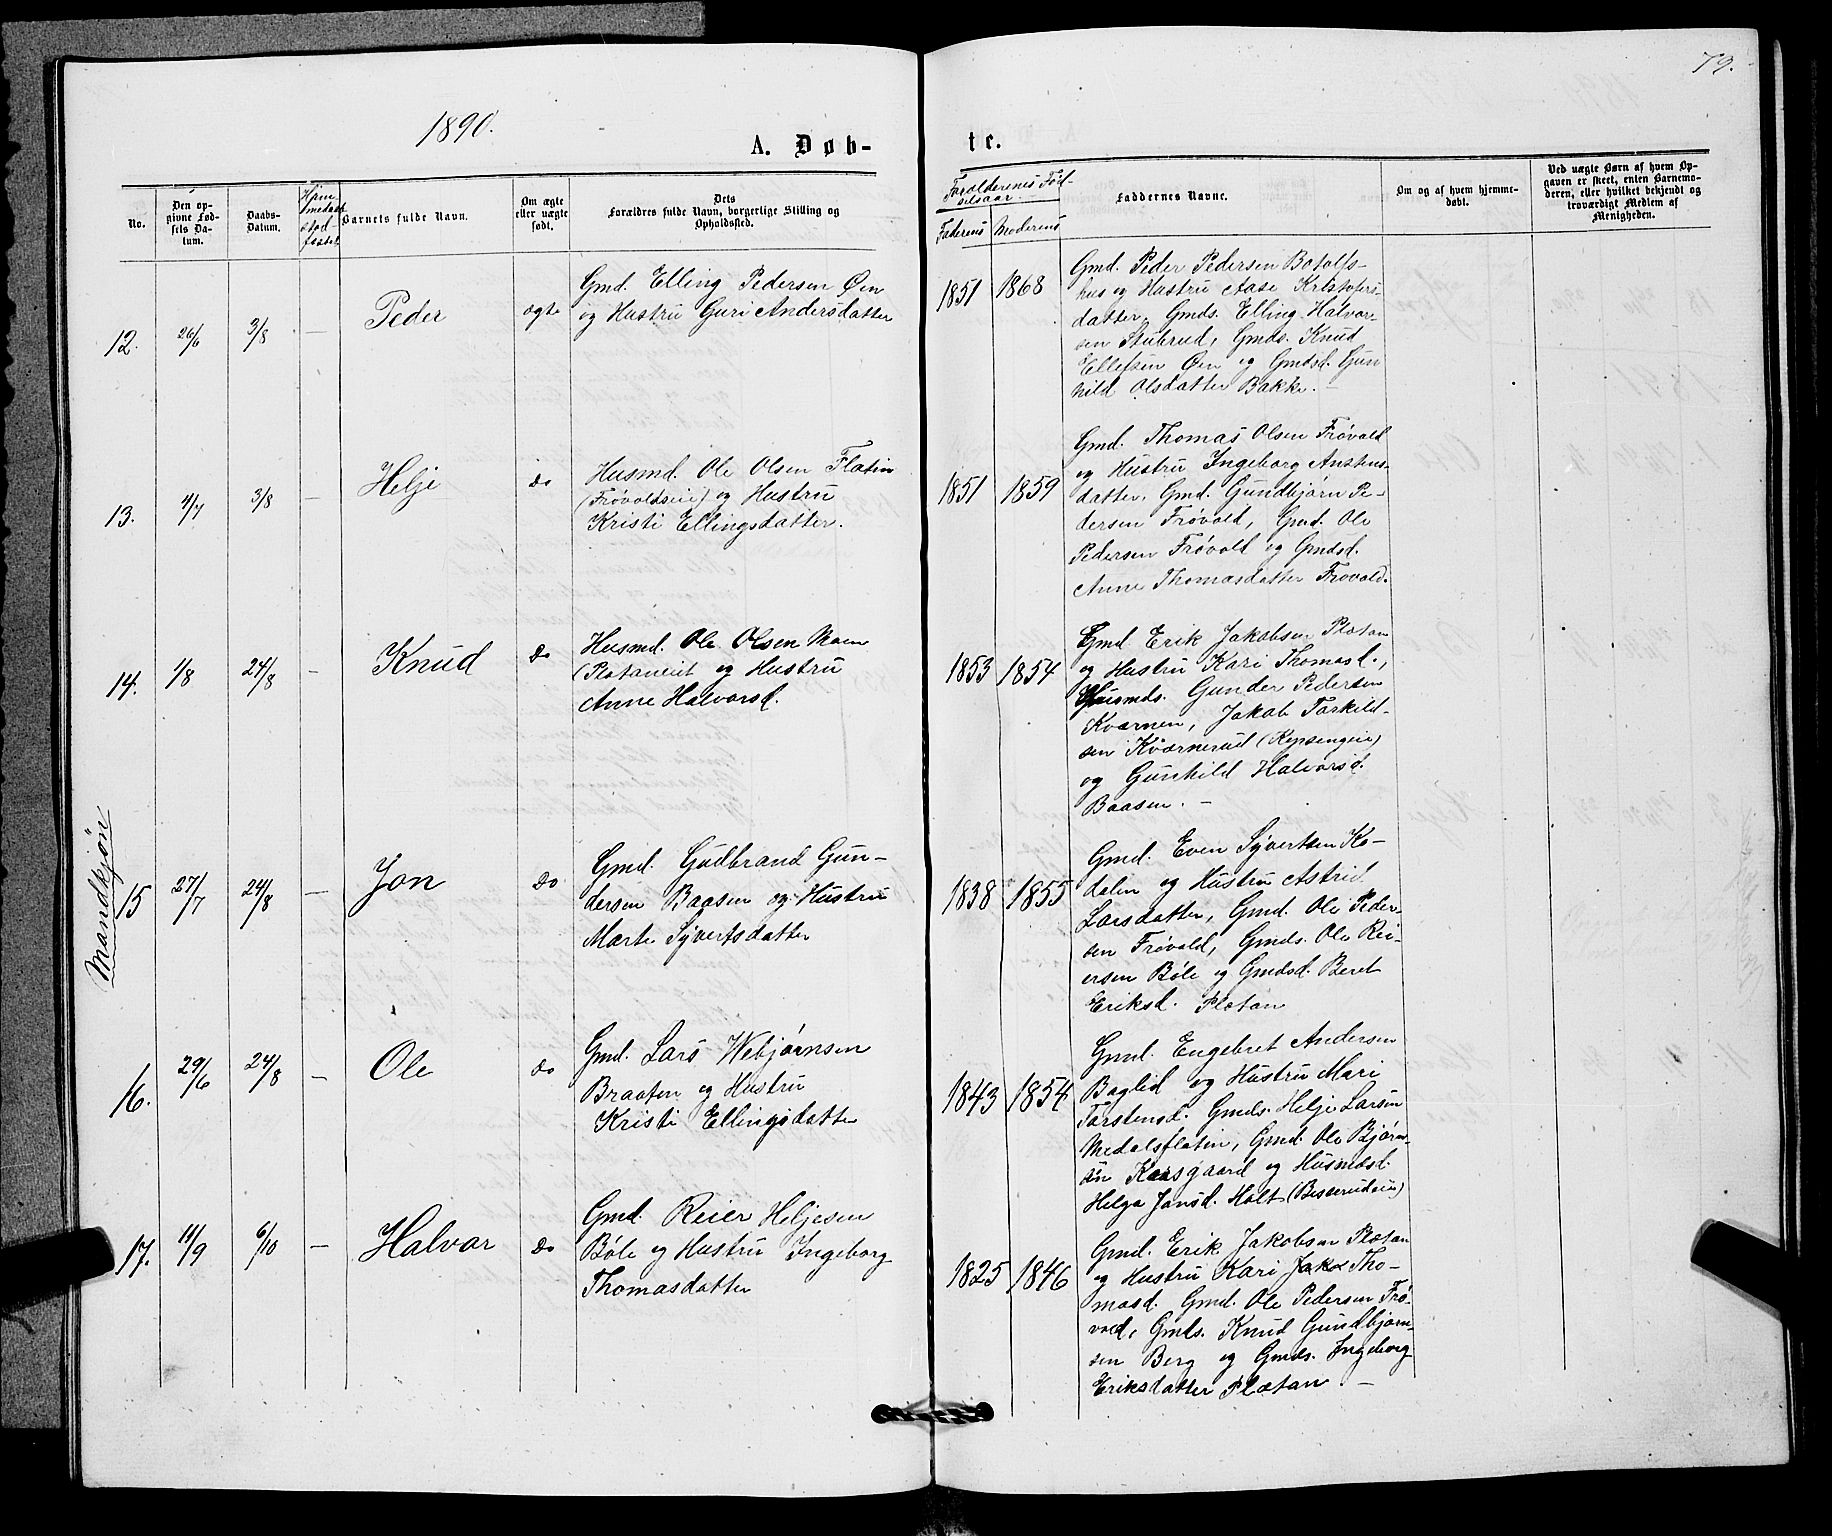 79.
1890.
A. Døb-
te.
No.
Den op-
givne Fød-
sels Da-
tum.
Daabs-
Datum.
Barnets fulde Navn.
Om ægte
eller uægte
født.
Dets
Forældres fulde Navn, borgerlige Stilling og
Opholdssted.
Forælderenes Fød-
selsaar.
Faderens
Moderens
Faddernes Navne.
Om og af hvem hjemme-
døbt.
Ved uægte Børn af hvem Op-
gaven er skeet, enten Barnemo-
deren, eller hvilket bekjendt og
troværdigt Medlem af
Menigheden.
Mandkjøn
12.
26/6
3/8
—
Peder
ægte
Gmd. Elling Pedersen Øen
og Hustru Guri Andersdatter
1851
1868
Gmd. Peder Pedersen Botolfs-
hus og Hustru Aase Kristofers-
datter, Gmds. Elling Halvor-
sen Stubrud, Gmds. Knud
Ellefsen Øen og Gmdsd. Gun
hild Olsdatter Bakke. —
13.
4/7
3/8
—
Helje
do
Husmd. Ole Olsen Flatin
(Frøvoldseie) og Hustru
Kristi Ellingsdatter.
1851
1859
Gmd. Thomas Olsen Frøvold
og Hustru Ingeborg Anstens-
datter, Gmd. Gundbjørn Pe-
dersen Frøvold, Gmd. Ole
Pedersen Frøvold og Gmdsd.
Anne Thomasdatter Frøvold.
14.
1/8
24/8
—
Knud
do
Husmd. Ole Olsen Moen
og Hustru
Anne Halvorsd.
1853
1854
Gmd Erik Jakobsen Plætan
og Hustru Kari Thomasd.,
Husmds. Gunder Pedersen
Kværnen, Jakob Tarkild-
sen Kværnerud
og Gunhild Halvorsd.
Baasen. —
15
27/7
24/8
—
Jon
do
Gmd. Gudbrand Gun-
dersen Baasen og Hustru
Marte Syvertsdatter
1838
1855
Gmd. Even Syvertsen Ko-
dalen og Hustru Astrid
Larsdatter, Gmd. Ole Peder-
sen Frøvold, Gmds. Ole Rei-
ersen Bøle og Gmdsd. Beret
Eriksd. Plætan
16.
29/6
24/8
—
Ole
do
Gmd. Lars Webjørnsen
Braaten og Hustru
Kristi Ellingsdatter
1843
1854
Gmd. Engebret Andersen
Baglid og Hustru Mari
Torstensd. Gmds. Helje Larsen
Medalsflatin, Gmd. Ole Bjørn-
sen Kaasgaard og Husmdsd.
Helga Jonsd. Holt
17.
11/9
6/10
—
Halvor
do
Gmd. Reier Heljesen
Bøle og Hustru Ingeborg
Thomasdatter
1825
1846
Gmd. Erik Jakobsen Plætan
og Hustru Kari Tho-
masd. Gmd. Ole Pedersen Frø-
vold, Gmds. Knud Gundbjørn-
sen Berg og Gmds. Ingeborg
Eriksdatter Plætan. —